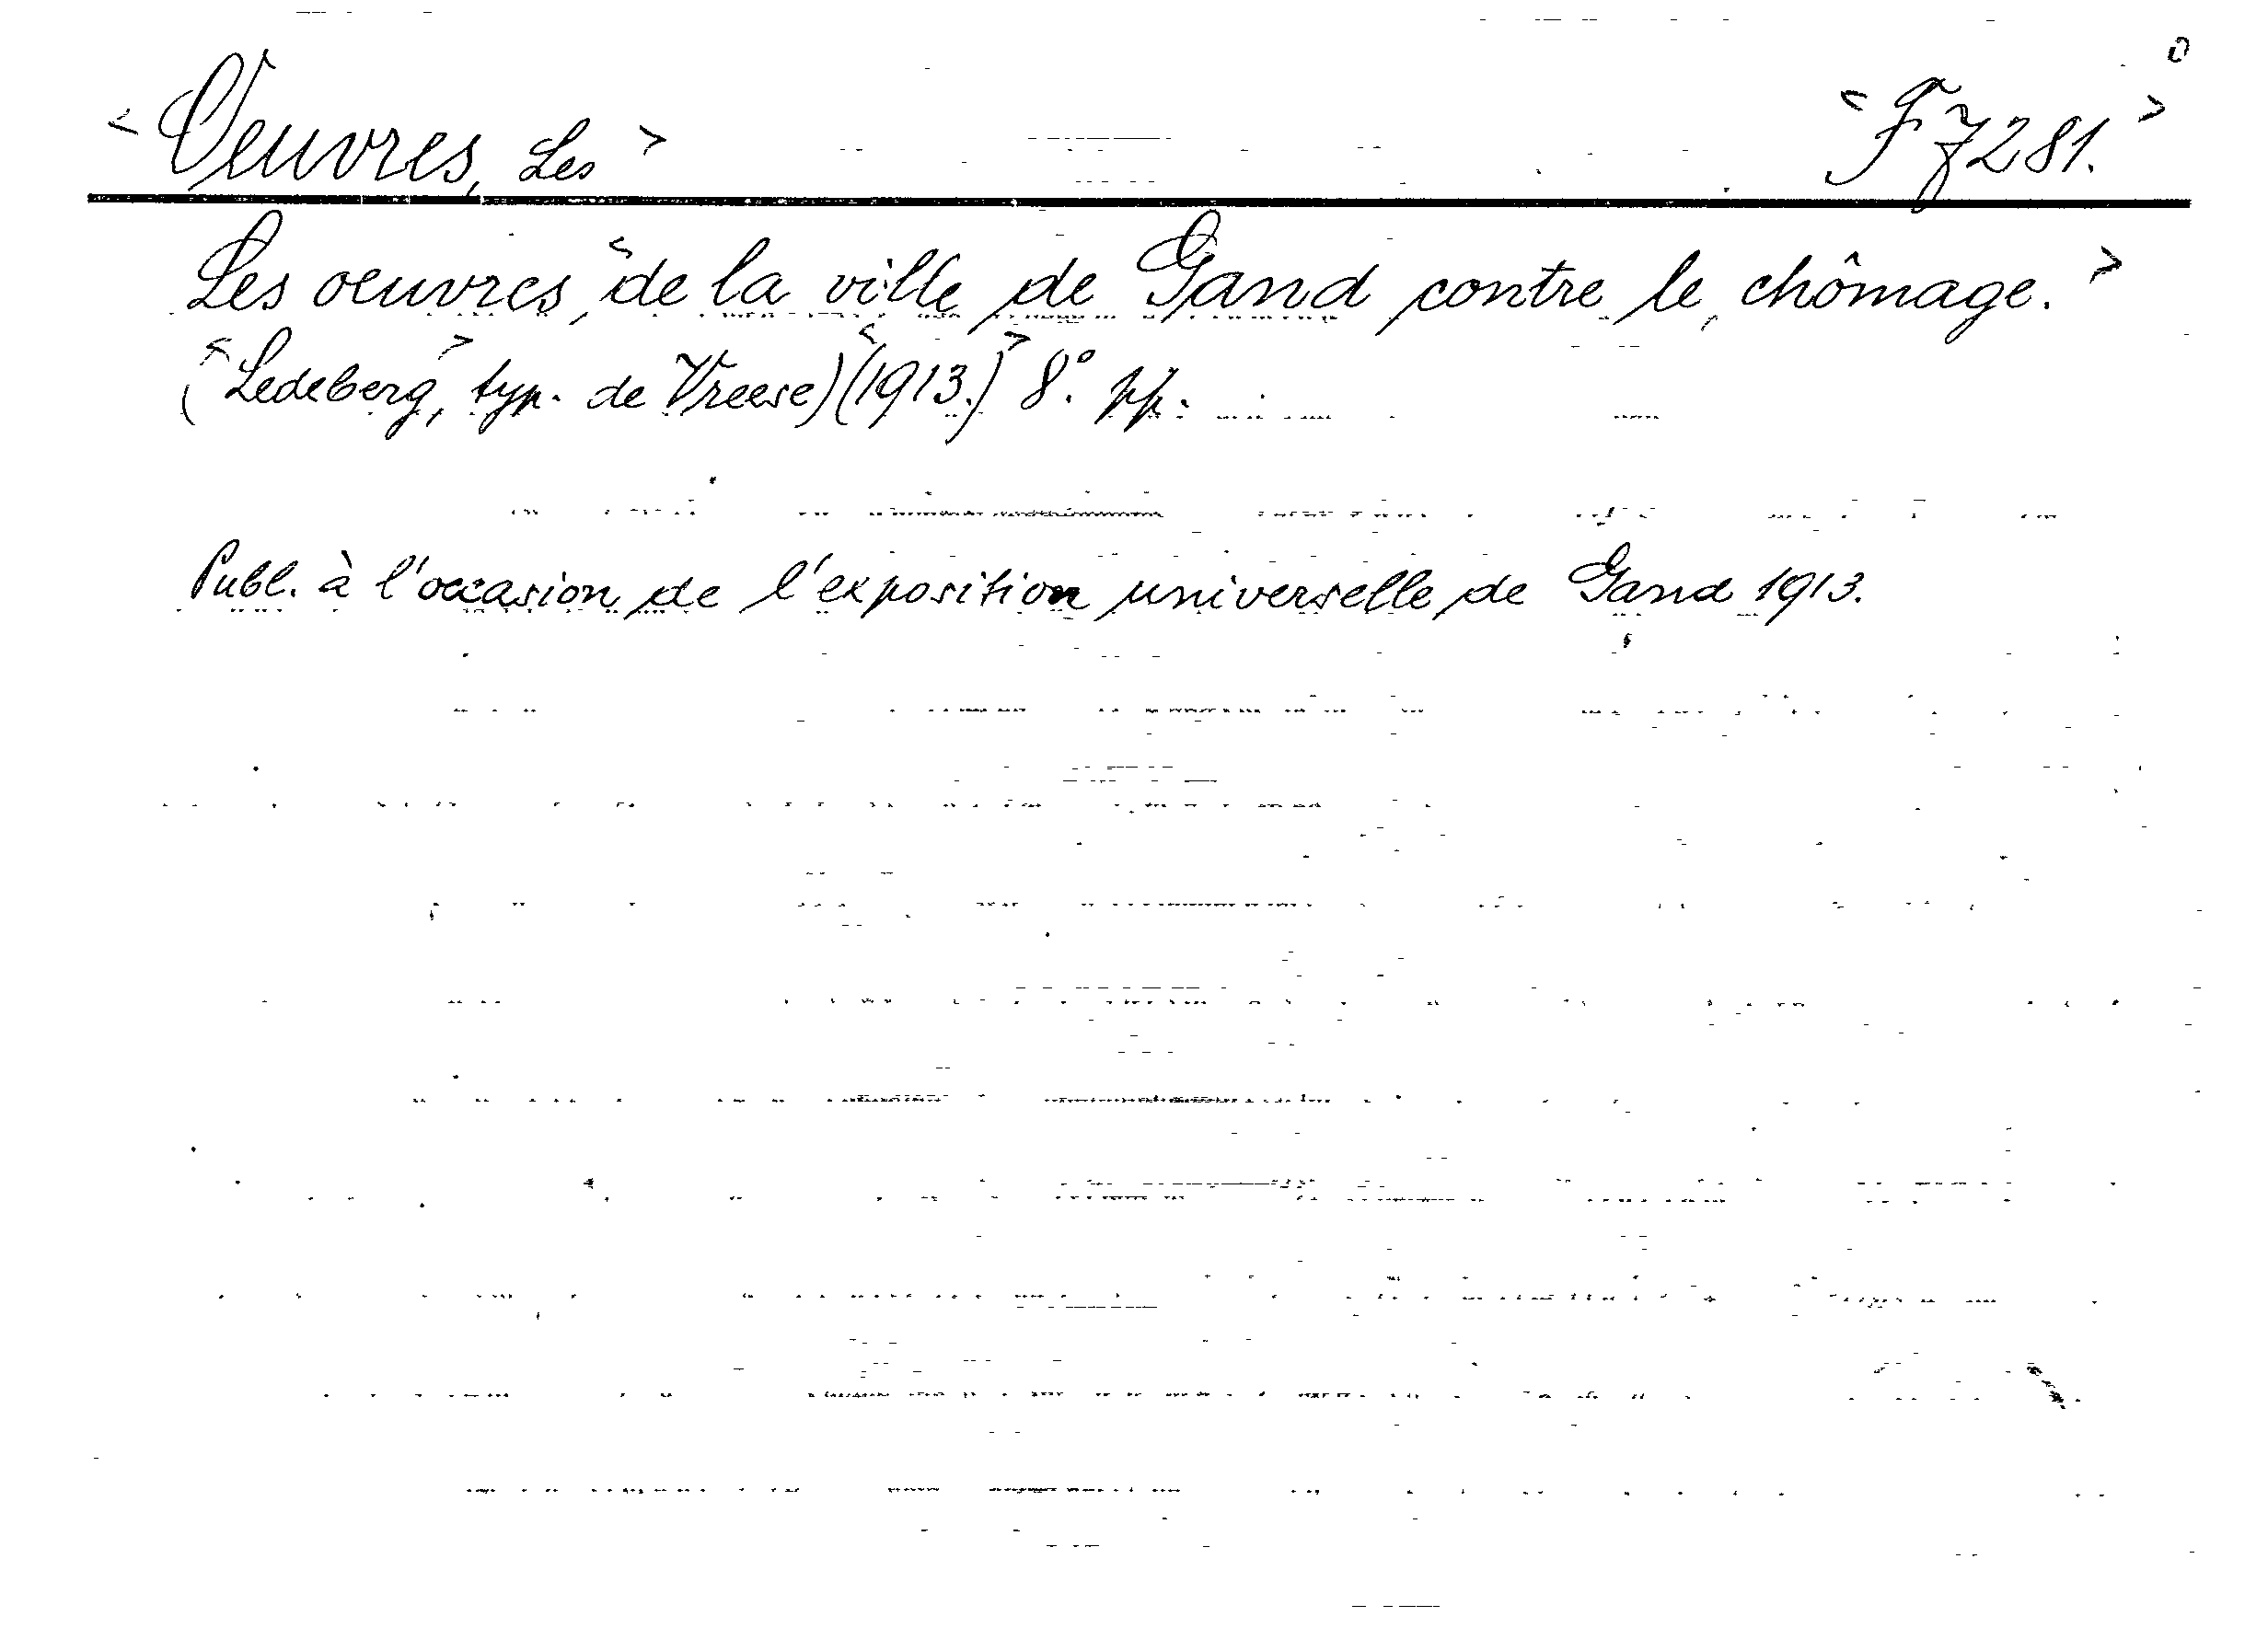 < Oeuvres, Les > < F 7281. > 0
Les oeuvres, < de la ville de Gand contre le chômage. >
(< Ledeberg, > typ. de Vreese) < (1913.) > 8°. pp.
Publ. à l'occasion de l'exposition universelle de Gand 1913.